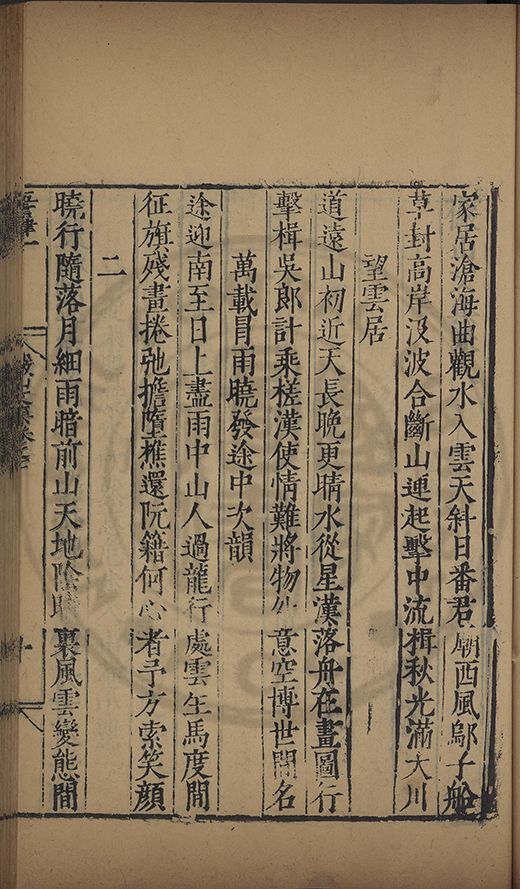 家居滄海曲觀水入雲天斜日番君廟西風鄔子船
草封高岸沒波合斷山連起擊中流楫秋光滿大川
望雲居
道遠山初近天長晚更晴水從星漢落舟在畫圖行
擊楫吳郎計乘槎漢使情難將物外意空博世間名
萬載冒雨曉發途中次韻
途迎南至日上盡雨中山人過龍行處雲生馬度間
征旗殘畫捲弛擔墮樵還阮籍何心者予方索笑顏
二
曉行隨落月細雨暗前山天地陰晴裏風雲變態間